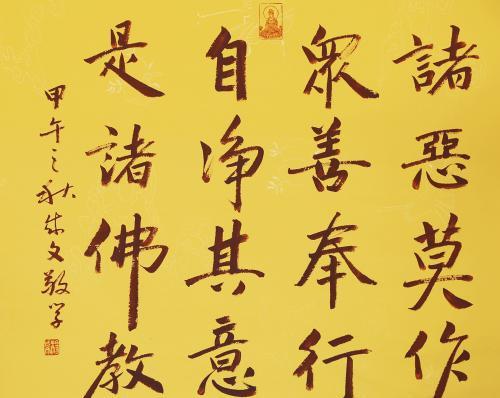 諸惡莫作
眾善奉行
自淨其意
是諸佛教
甲午之秋成文敬学